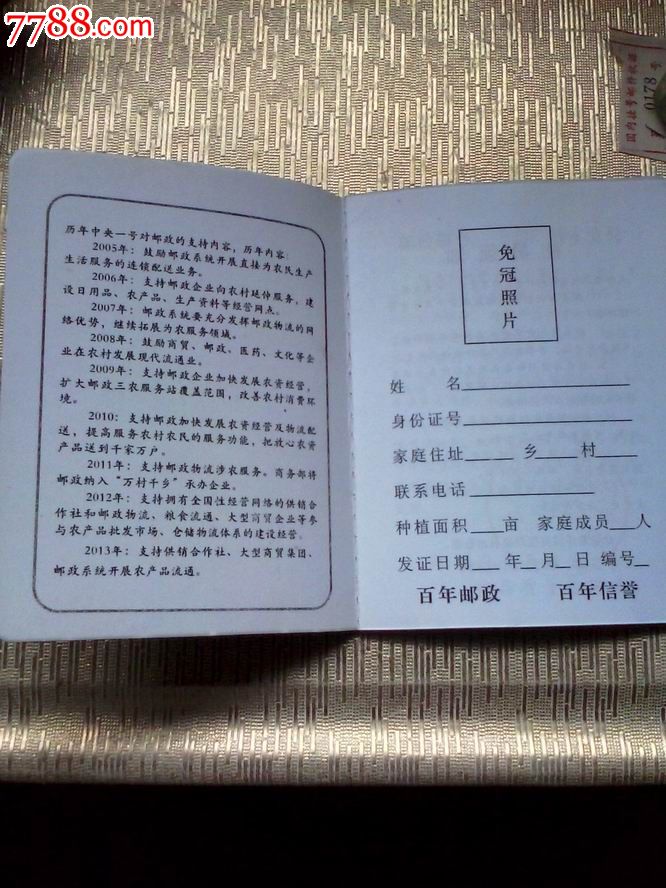 7788.com
国内挂号邮件收据
0178 号
历年中央一号对邮政的支持内容，历年内容：
2005年：鼓励邮政系统开展直接为农民生产
生活服务的连锁配送业务。
2006年：支持邮政企业向农村延伸服务，建
设日用品、农产品、生产资料等经营网点。
2007年：邮政系统要充分发挥邮政物流的网
络优势，继续拓展为农服务领域。
2008年：鼓励商贸、邮政、医药、文化等企
业在农村发展现代流通业。
2009年：支持邮政企业加快发展农资经营，
扩大邮政三农服务站覆盖范围，改善农村消费环
境。
2010：支持邮政加快发展农资经营及物流配
送，提高服务农村农民的服务功能，把放心农资
产品送到千家万户。
2011年：支持邮政物流涉农服务。商务部将
邮政纳入“万村千乡”承办企业。
2012年：支持拥有全国性经营网络的供销合
作社和邮政物流、粮食流通、大型商贸企业等参
与农产品批发市场、仓储物流体系的建设经营。
2013年：支持供销合作社、大型商贸集团、
邮政系统开展农产品流通。
免
冠
照
片
姓 名
身份证号
家庭住址 乡 村
联系电话
种植面积 亩 家庭成员 人
发证日期 年 月 日 编号
百年邮政 百年信誉